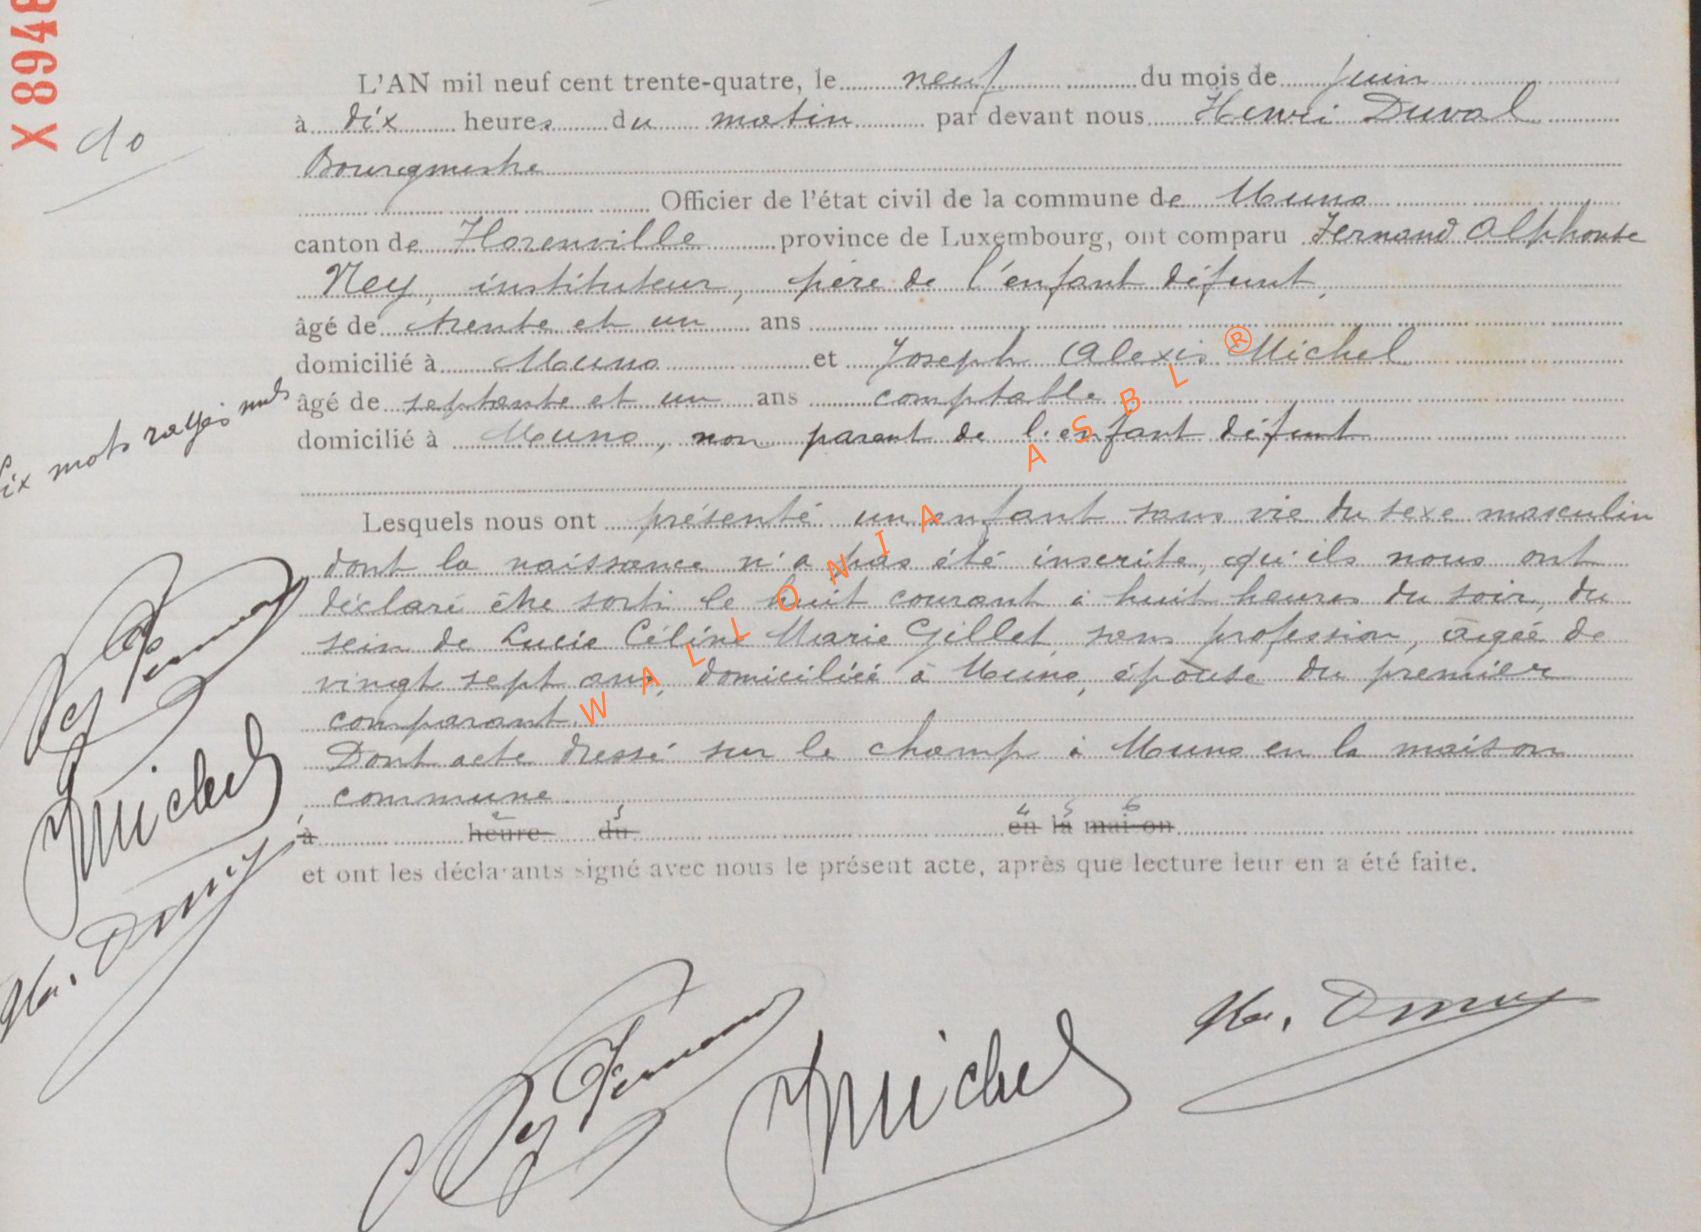 X 8948
10
L'AN mil neuf cent trente-quatre, le neuf du mois de juin
à dix heures du matin par devant nous Henri Duval
Bourgmestre
Officier de l'état civil de la commune de Muno
canton de Florenville province de Luxembourg, ont comparu Fernand Alphonse
Ney, instituteur, père de l'enfant défunt,
âgé de trente et un ans
domicilié à Muno et Joseph Alexis Michel
âgé de septante et un ans comptable
domicilié à Muno, non parent de l'enfant défunt
Six mots rayés nuls
Lesquels nous ont présenté un enfant sans vie du sexe masculin
dont la naissance n'a pas été inscrite, qu'ils nous ont
déclaré être sorti le huit courant à huit heures du soir, du
sein de Lucie Céline Marie Gillet, sans profession, âgée de
vingt sept ans, domiciliée à Muno, épouse du premier
comparant.
Dont acte dressé sur le champ à Muno en la maison
commune.
1 2 3 4 5 6
à heure du en la maison
et ont les déclarants signé avec nous le présent acte, après que lecture leur en a été faite.
Ney Fernand
Michel
Hri. Duval
Ney Fernand Michel Hri. Duval
WALLONIA ASBL ®